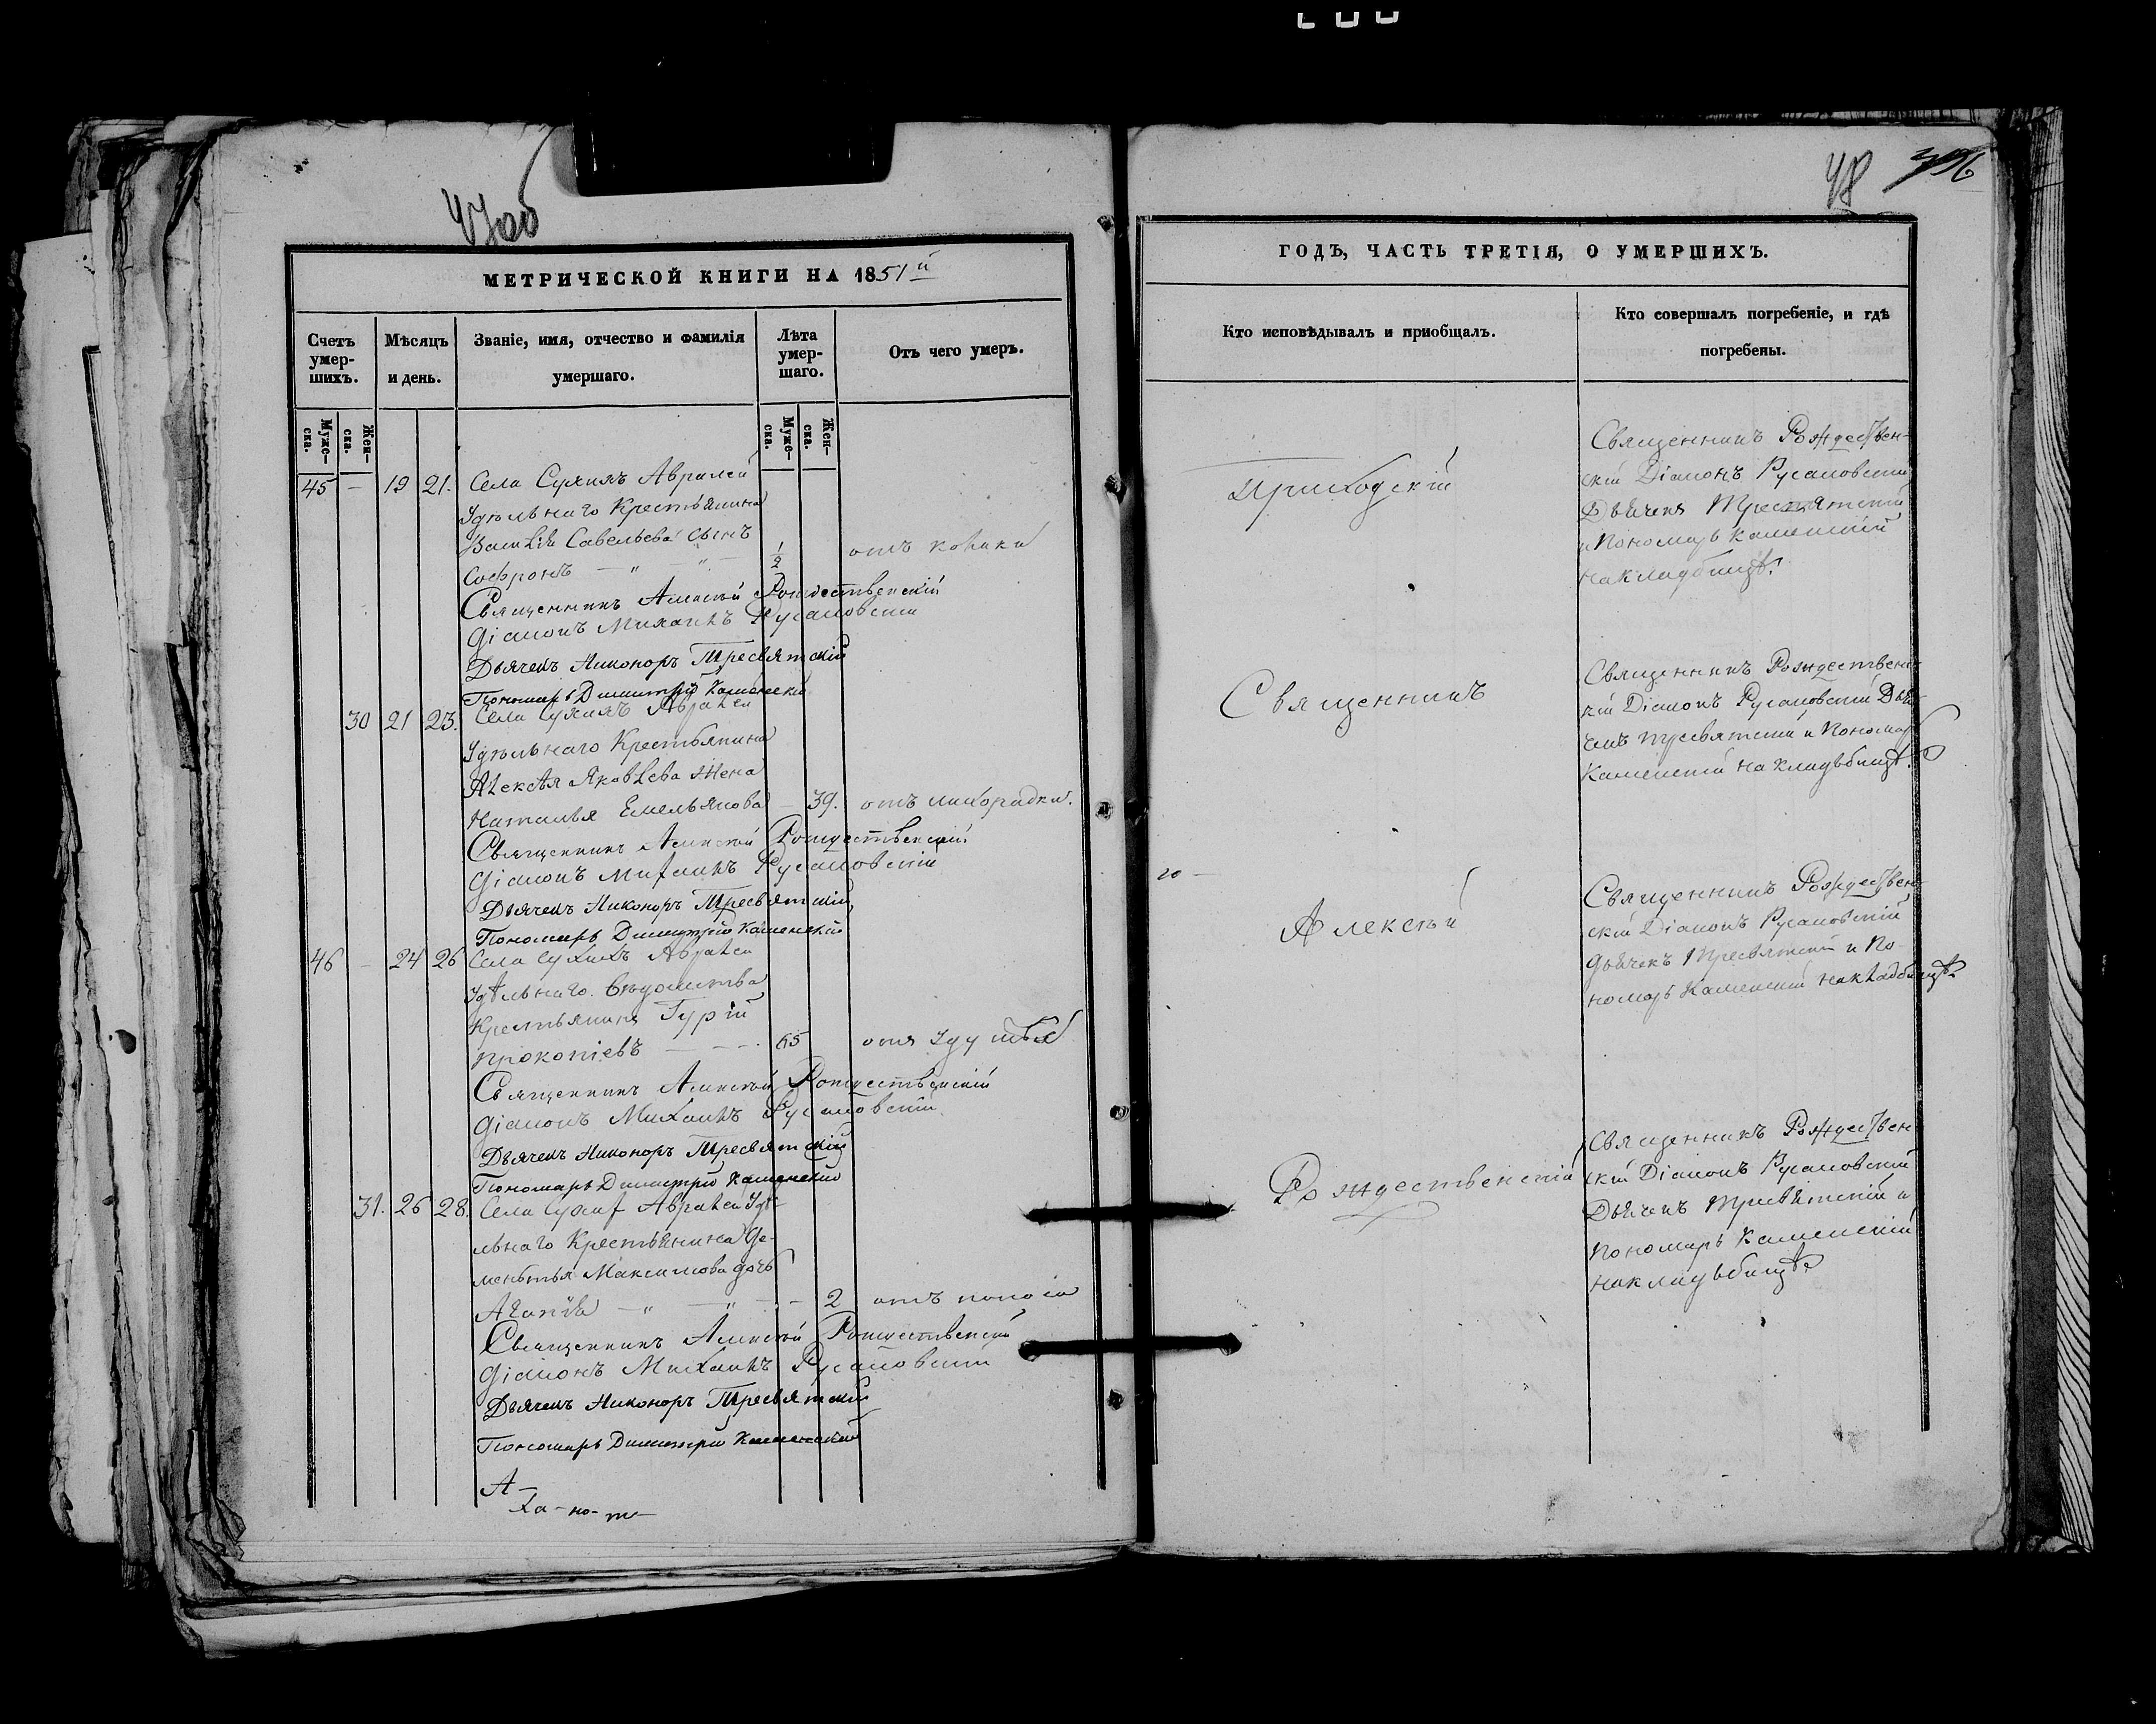 47об
МЕТРИЧЕСКОЙ КНИГИ НА 1851й
Счетъ умер-шихъ.
Мѣсяцъ и день.
Званіе, имя, отчество и фамилія умершаго.
Лѣта умер-шаго.
Отъ чего умеръ.
Муже-ска.
Жен-ска.
Муже-ска.
Жен-ска.
45 - 19 21. Села Сухихъ Авралей
Удѣльнаго Крестьянина
Василія Савельева сынъ
Софронъ — " — " — 1/2 отъ колики
Священникъ Алексѣй Рождественскій
Діаконъ Михаилъ Русановскій
Дьячекъ Никоноръ Тресвятскій
Пономарь Димитрій Каменскій
30 21 23. Села Сухихъ Авралей
Удѣльнаго Крестьянина
Алексѣя Яковлева жена
Наталья Емельянова — 39. отъ лихорадки.
Священникъ Алексѣй Рождественскій
Діаконъ Михаилъ Русановскій
Дьячекъ Никоноръ Тресвятскій
Пономарь Димитрій Каменскій
46 - 24 26 Села Сухихъ Авралей
Удѣльнаго вѣдомства
Крестьянинъ Гурій
Прокопіевъ — 65 отъ удушья
Священникъ Алексѣй Рождественскій
Діаконъ Михаилъ Русановскій
Дьячекъ Никоноръ Тресвятскій
Пономарь Димитрій Каменскій
31. 26 28. Села Сухихъ Авралей Удѣ-
льнаго Крестьянина Де-
ментья Максимова дочь
Агапія — " — " — 2 отъ поноса
Священникъ Алексѣй Рождественскій
Діаконъ Михаилъ Русановскій
Дьячекъ Никоноръ Тресвятскій
Пономарь Димитрій Каменскій
А-
ха-но-т-
48
ГОДЪ, ЧАСТЬ ТРЕТІЯ, О УМЕРШИХЪ.
Кто исповѣдывалъ и пріобщалъ.
Кто совершалъ погребеніе, и гдѣ погребены.
Приходскій
Священникъ
Алексѣй
Рождественскій
Священникъ Рождествен-
скій Діаконъ Русановскій
Дьячекъ Тресвятскій
и Пономарь Каменскій
на кладбищѣ.
Священникъ Рождественс-
кій Діаконъ Русановскій Дья-
чекъ Тресвятскій и Пономарь
Каменскій на кладьбищѣ.
Священникъ Рождествен-
скій Діаконъ Русановскій
Дьячекъ Тресвятскій и По-
номарь Каменскій на кладбищѣ
Священникъ Рождествен
скій Діаконъ Русановскій
Дьячекъ Тресвятскій и
Пономарь Каменскій
на кладьбищѣ